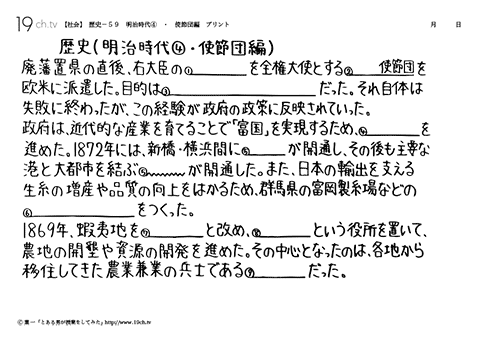 19ch.tv 【社会】 歴史－59 明治時代④ ・ 使節団編 プリント 月 日
歴史(明治時代④・使節団編)
廃藩置県の直後、右大臣の①________を全権大使とする②____使節団を
欧米に派遣した。目的は③________________だった。それ自体は
失敗に終わったが、この経験が政府の政策に反映されていった。
政府は、近代的な産業を育てることで「富国」を実現するため、④________を
進めた。1872年には、新橋・横浜間に⑤______が開通し、その後も主要な
港と大都市を結ぶ⑥______が開通した。また、日本の輸出を支える
生糸の増産や品質の向上をはかるため、群馬県の富岡製糸場などの
⑥____________をつくった。
1869年、蝦夷地を⑦________と改め、⑧________という役所を置いて、
農地の開墾や資源の開発を進めた。その中心となったのは、各地から
移住してきた農業兼業の兵士である⑨________だった。
Ⓒ葉一「とある男が授業をしてみた」http://www.19ch.tv